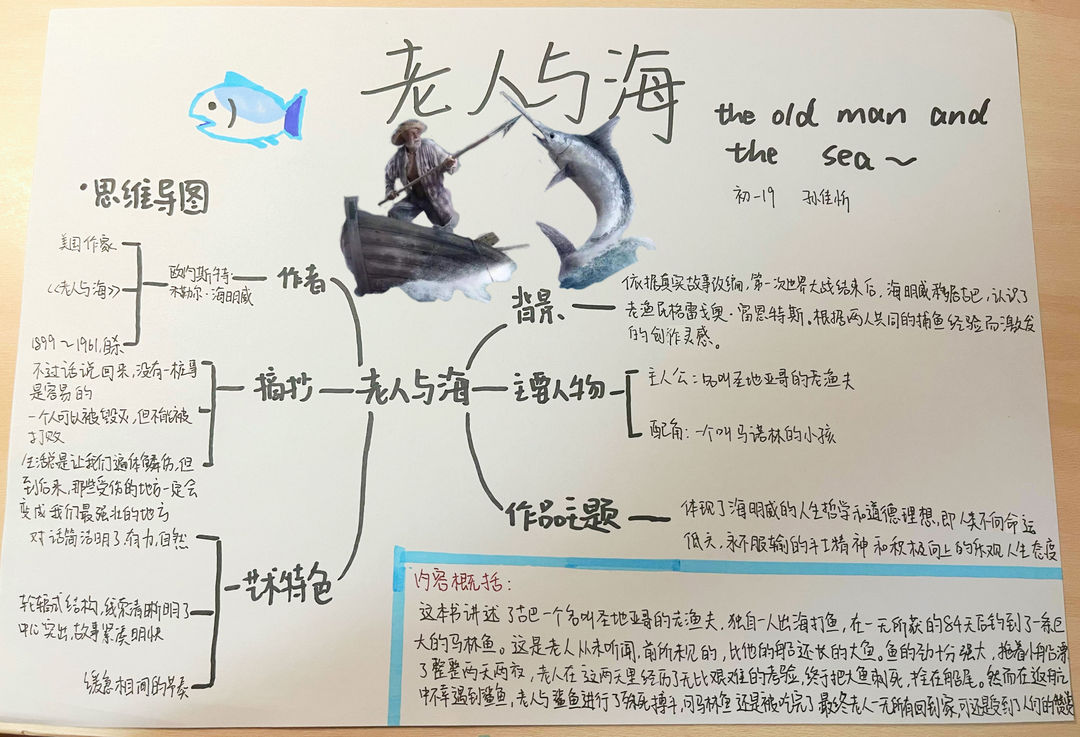 老人与海
the old man and
the sea~
初一19 孙佳忻
·思维导图
美国作家
《老人与海》
1899~1961,自杀
欧内斯特·
米勒尔·海明威
作者
不过话说回来,没有一桩事
是容易的
一个人可以被毁灭,但不能被
打败
生活总是让我们遍体鳞伤,但
到后来,那些受伤的地方一定会
变成我们最强壮的地方
摘抄
老人与海
对话简洁明了,有力,自然
轮辐式结构,线索清晰明了
中心突出,故事紧凑明快
缓急相间的节奏
艺术特色
背景
依据真实故事改编,第一次世界大战结束后,海明威移居古巴,认识了
老渔民格雷戈奥·富恩特斯。根据两人共同的捕鱼经验而激发
的创作灵感。
主要人物
主人公:名叫圣地亚哥的老渔夫
配角:一个叫马诺林的小孩
作品主题
体现了海明威的人生哲学和道德理想,即人类不向命运
低头,永不服输的斗士精神和积极向上的乐观人生态度
内容概括:
这本书讲述了古巴一个名叫圣地亚哥的老渔夫,独自一人出海打鱼,在一无所获的84天后钓到了一条巨
大的马林鱼。这是老人从未听闻,前所未见的,比他的船还长的大鱼。鱼的劲十分强大,拖着小船漂
了整整两天两夜,老人在这两天里经历了无比艰难的考验,终于把大鱼刺死,拴在船尾。然而在返航
中不幸遇到鲨鱼,老人与鲨鱼进行了殊死搏斗,可马林鱼还是被吃完了最终老人一无所有回到家,可还是受到了人们的赞美